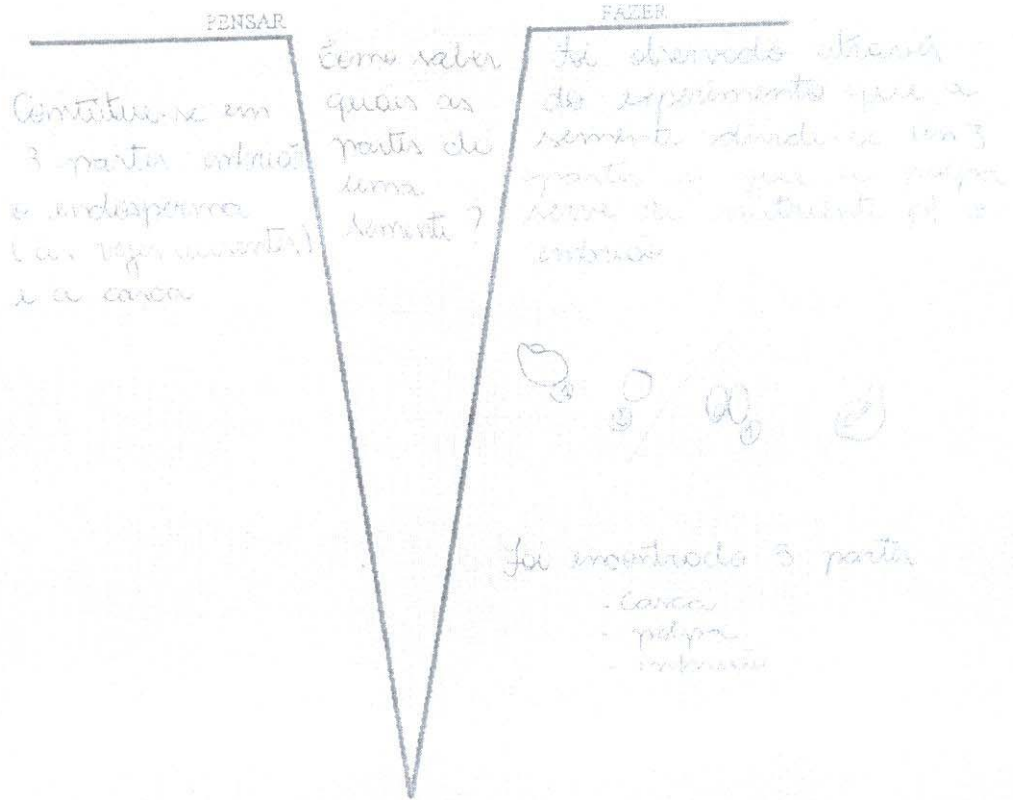 PENSAR
Constitui-se em
3 partes embrião
e endosperma
(as vezes
e a casca
Como saber
quais as
partes de
uma
semente?
FAZER
foi observado através
do experimento que a
semente divide-se em 3
partes e que a polpa
serve de nutriente p/ o
embrião
foi encontrado 3 partes
- casca
- polpa
- embrião